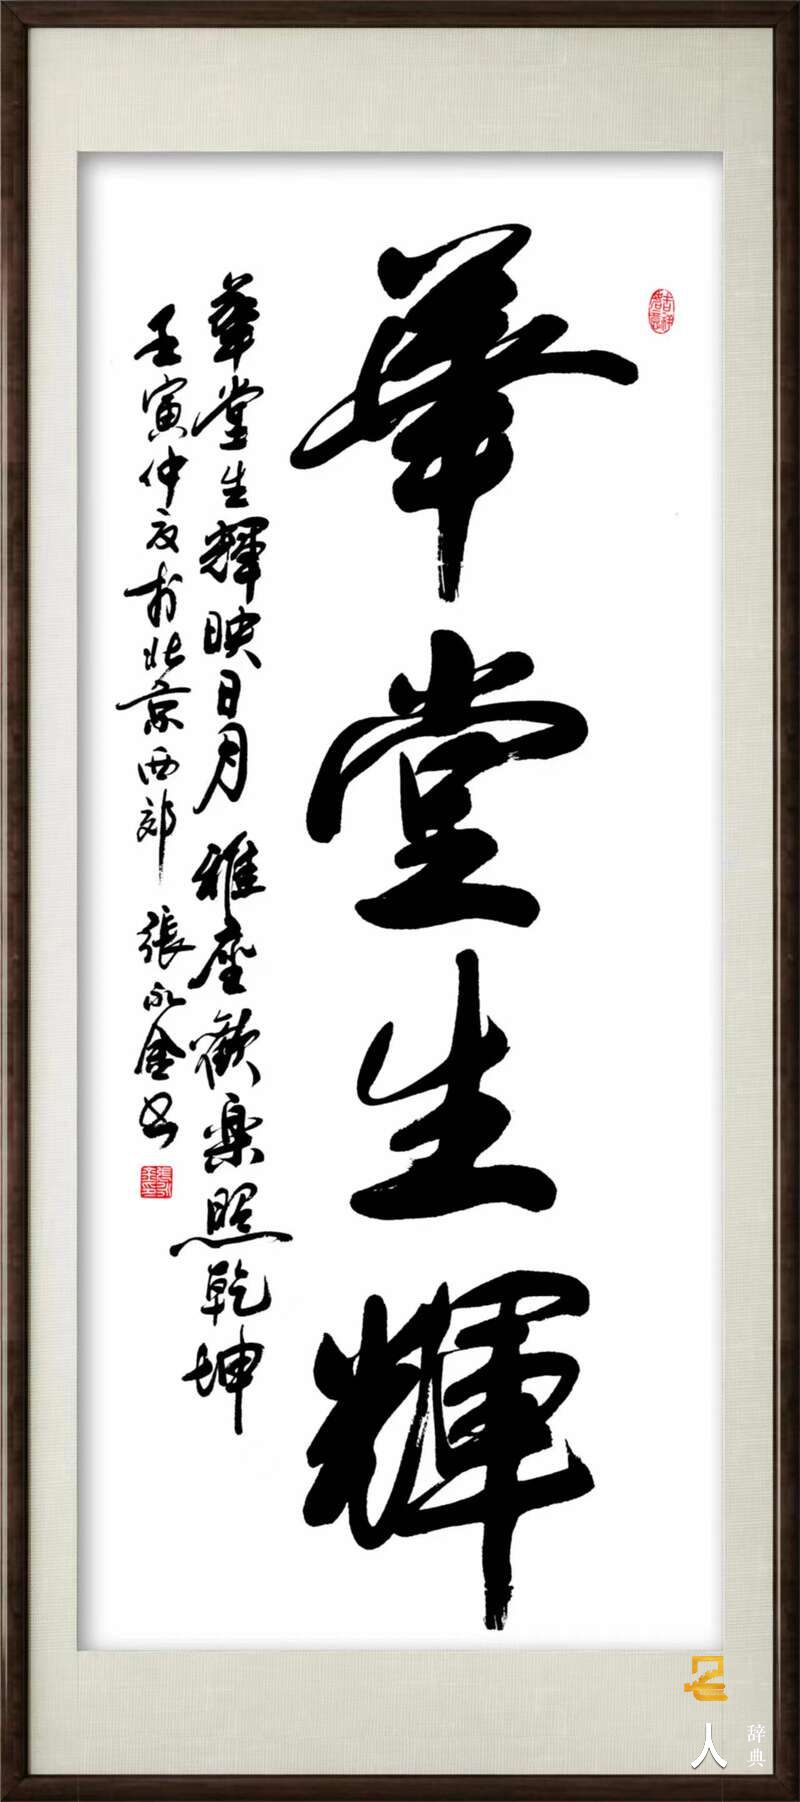 華堂生輝
華堂生輝映日月 雅座歡樂照乾坤
壬寅仲夏於北京西郊 張永金书
名人
辞典